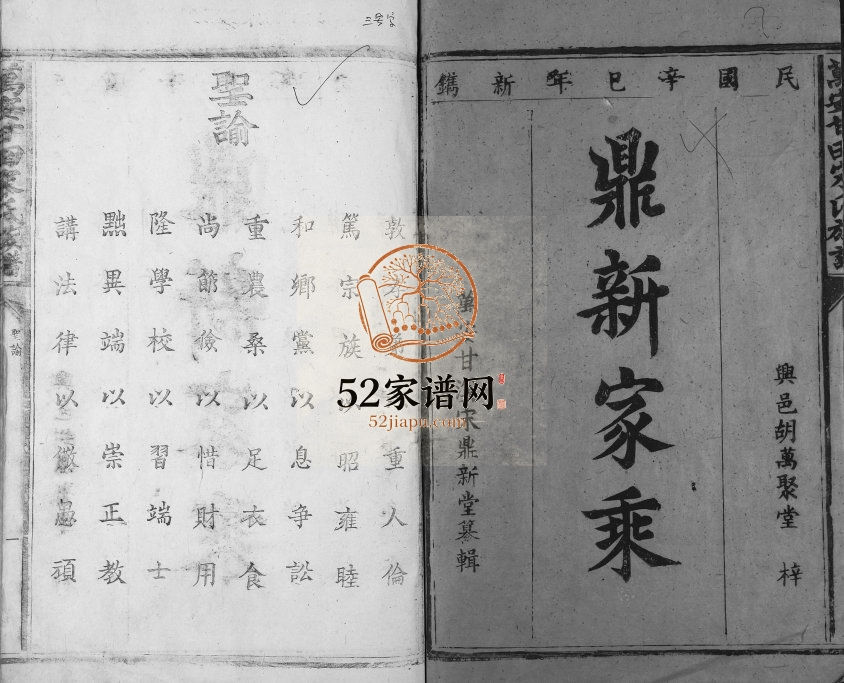 民國辛巳年新鐫
興邑胡萬聚堂 梓
鼎新家乘
萬 甘 宋鼎新堂纂輯
三号字
聖諭
敦孝 重人倫
篤宗族以昭雍睦
和鄉黨以息爭訟
重農桑以足衣食
尚節儉以惜財用
隆學校以習端士
黜異端以崇正教
講法律以儆愚頑
萬安甘田宋氏族譜
聖諭
一
萬安甘田宋氏族譜
52家谱网
52jiapu.com